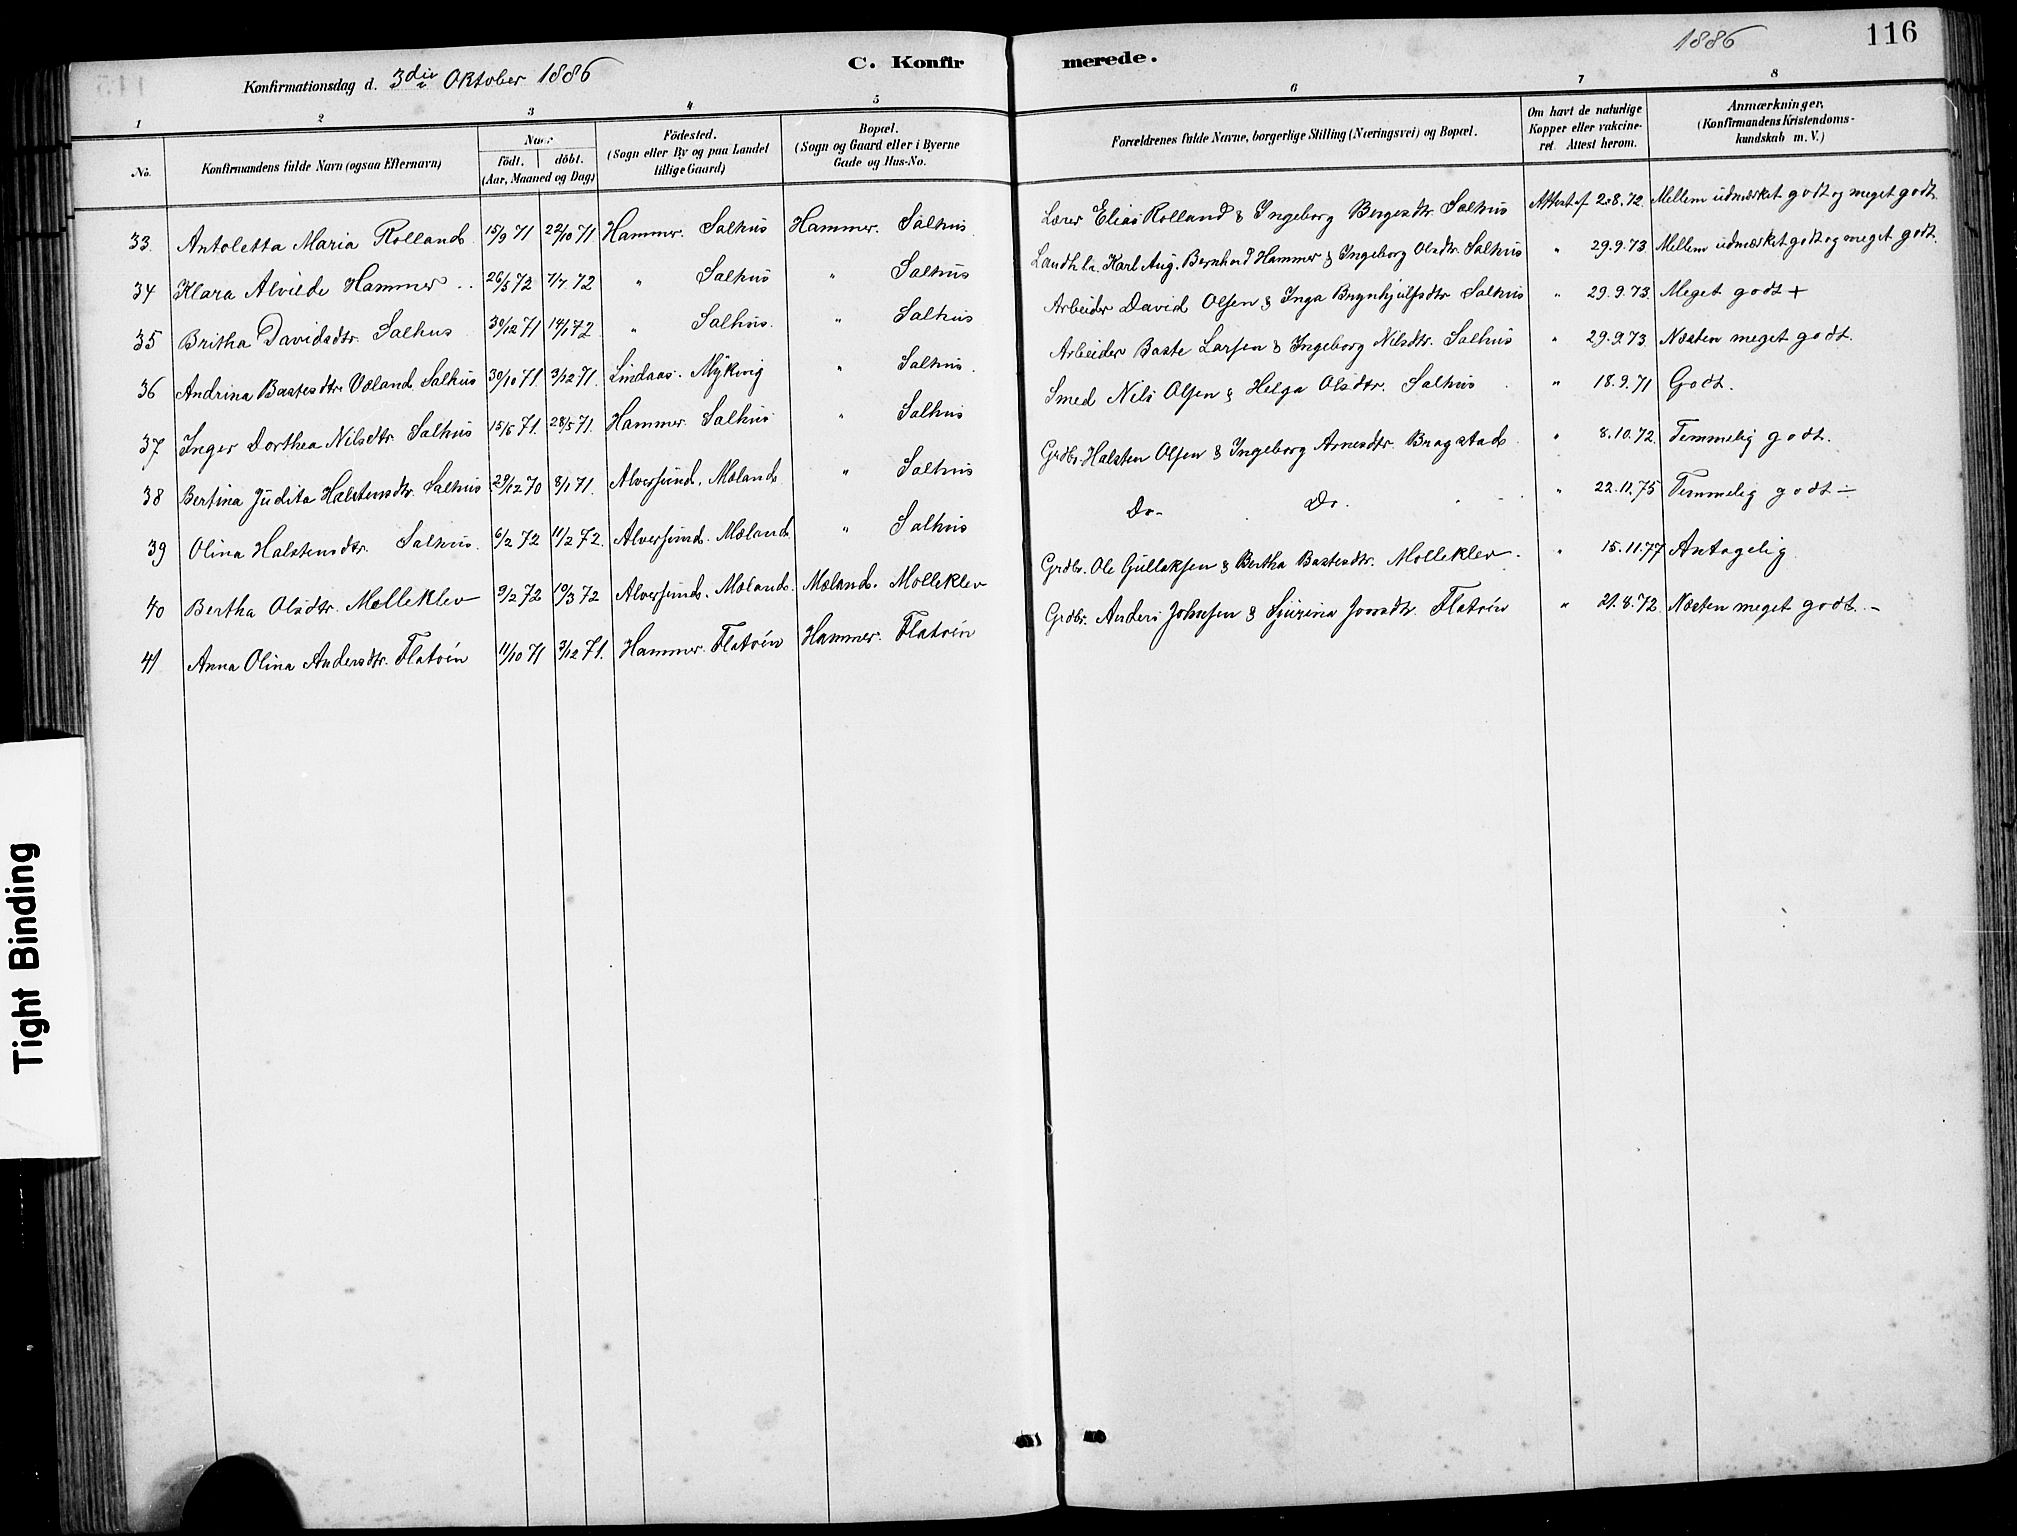 1886
116
C. Konfirmerede.
Konfirmationsdag d. 3die Oktober 1886
1 2 3 4 5 6 7 8
No.
Konfirmandens fulde Navn (ogsaa Efternavn)
Naar
født. døbt.
(Aar, Maaned og Dag)
Fødested.
(Sogn eller By og paa Landet
tillige Gaard)
Bopæl.
(Sogn og Gaard eller i Byerne
Gade og Hus-No.
Forældrenes fulde Navne, borgerlige Stilling (Næringsvei) og Bopæl.
Om havt de naturlige
Kopper eller vakcine-
ret. Attest herom.
Anmærkninger,
(Konfirmandens Kristendoms-
kundskab m. V.)
33. Antoletta Maria Rolland 15/9 71 22/10 71 Hammer. Salhus Hammer. Salhus Lærer Elias Rolland & Ingeborg Bergesdtr. Salhus Attest af 20.8.72. Mellem udmærket godt og meget godt.
34 Klara Alvilde Hammer 26/5 72 7/7 72 " Salhus " Salhus Landh. Karl Aug. Bernhard Hammer & Ingeborg Olsdtr. Salhus " 29.9.73. Mellem udmærket godt og meget godt.
35 Britha Davidsdtr. Salhus 30/12 71 14/1 72. " Salhus. " Salhus Arbeider David Olsen & Inga Brynhjulfsdtr Salhus " 29.9.73. Meget godt +
36 Andrina Bastesdtr. Væland Salhus 30/10 71. 3/12 71. Lindaas. Mykivig " Salhus. Arbeider Baste Larsen & Ingeborg Nilsdtr. Salhus " 29.9.73. Næsten meget godt.
37 Inger Dorthea Nilsdtr. Salhus 15/5 71. 28/5 71. Hammer. Salhus " Salhus Smed Nils Olsen & Helga Olsdtr. Salhus " 18.9.71 Godt.
38 Bertina Judita Halstensdtr. Salhus 29/12 70 8/1 71. Alversund. Mæland " Salhus Grdbr. Halsten Olsen & Ingeborg Arnesdtr. Bragstad " 8.10.72. Temmelig godt.
39 Olina Halstensdtr. Salhus. 6/2 72 11/2 72. Alversund. Mæland " Salhus Do. Do. " 22.11.75 Temmelig godt ÷
40 Bertha Olsdtr. Molleklev 9/2 72 10/3 72 Alversund. Mæland. Mæland. Molleklev Grdbr. Ole Gullaksen & Bertha Bastesdtr. Molleklev. " 15.11.77 Antagelig
41 Anna Olina Andersdtr. Flatøen 11/10 71 3/12 71. Hammer. Flatøen Hammer. Flatøen Grdbr. Anders Johnsen & Sjurina Joosdtr. Flatøen " 21.8.72. Næsten meget godt. –
Tight Binding